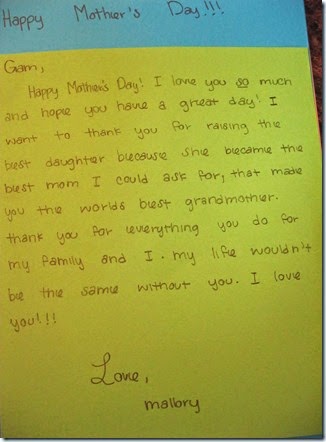 Happy Mother's Day!!!
Gam,
Happy Mother's Day! I love you so much
and hope you have a great day! I
want to thank you for raising the
best daughter because she became the
best mom I could ask for, that made
you the worlds best grandmother.
thank you for everything you do for
my family and I. my life wouldn't
be the same without you. I love
you!!!
Love,
mallory